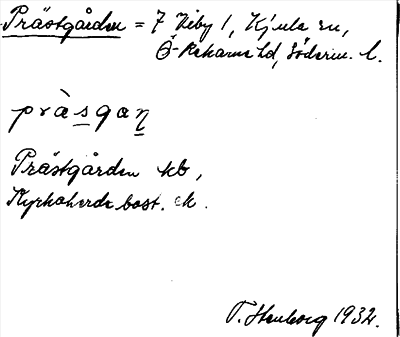 Prästgården = 7 Neby 1, Kjula sn,
Ö-Rekarne hd, Söderm. l.
pràsgaṉ
Prästgården kb,
Kyrkoherde bost. ek.
1932.